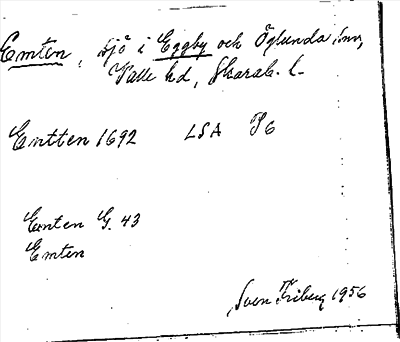 Emten, sjö i Eggby och Öglunda snr,
Valle hd, Skarab. l.
Emtten 1692 LSA P6
Emten G. 43
Emten
Sven Friberg 1956